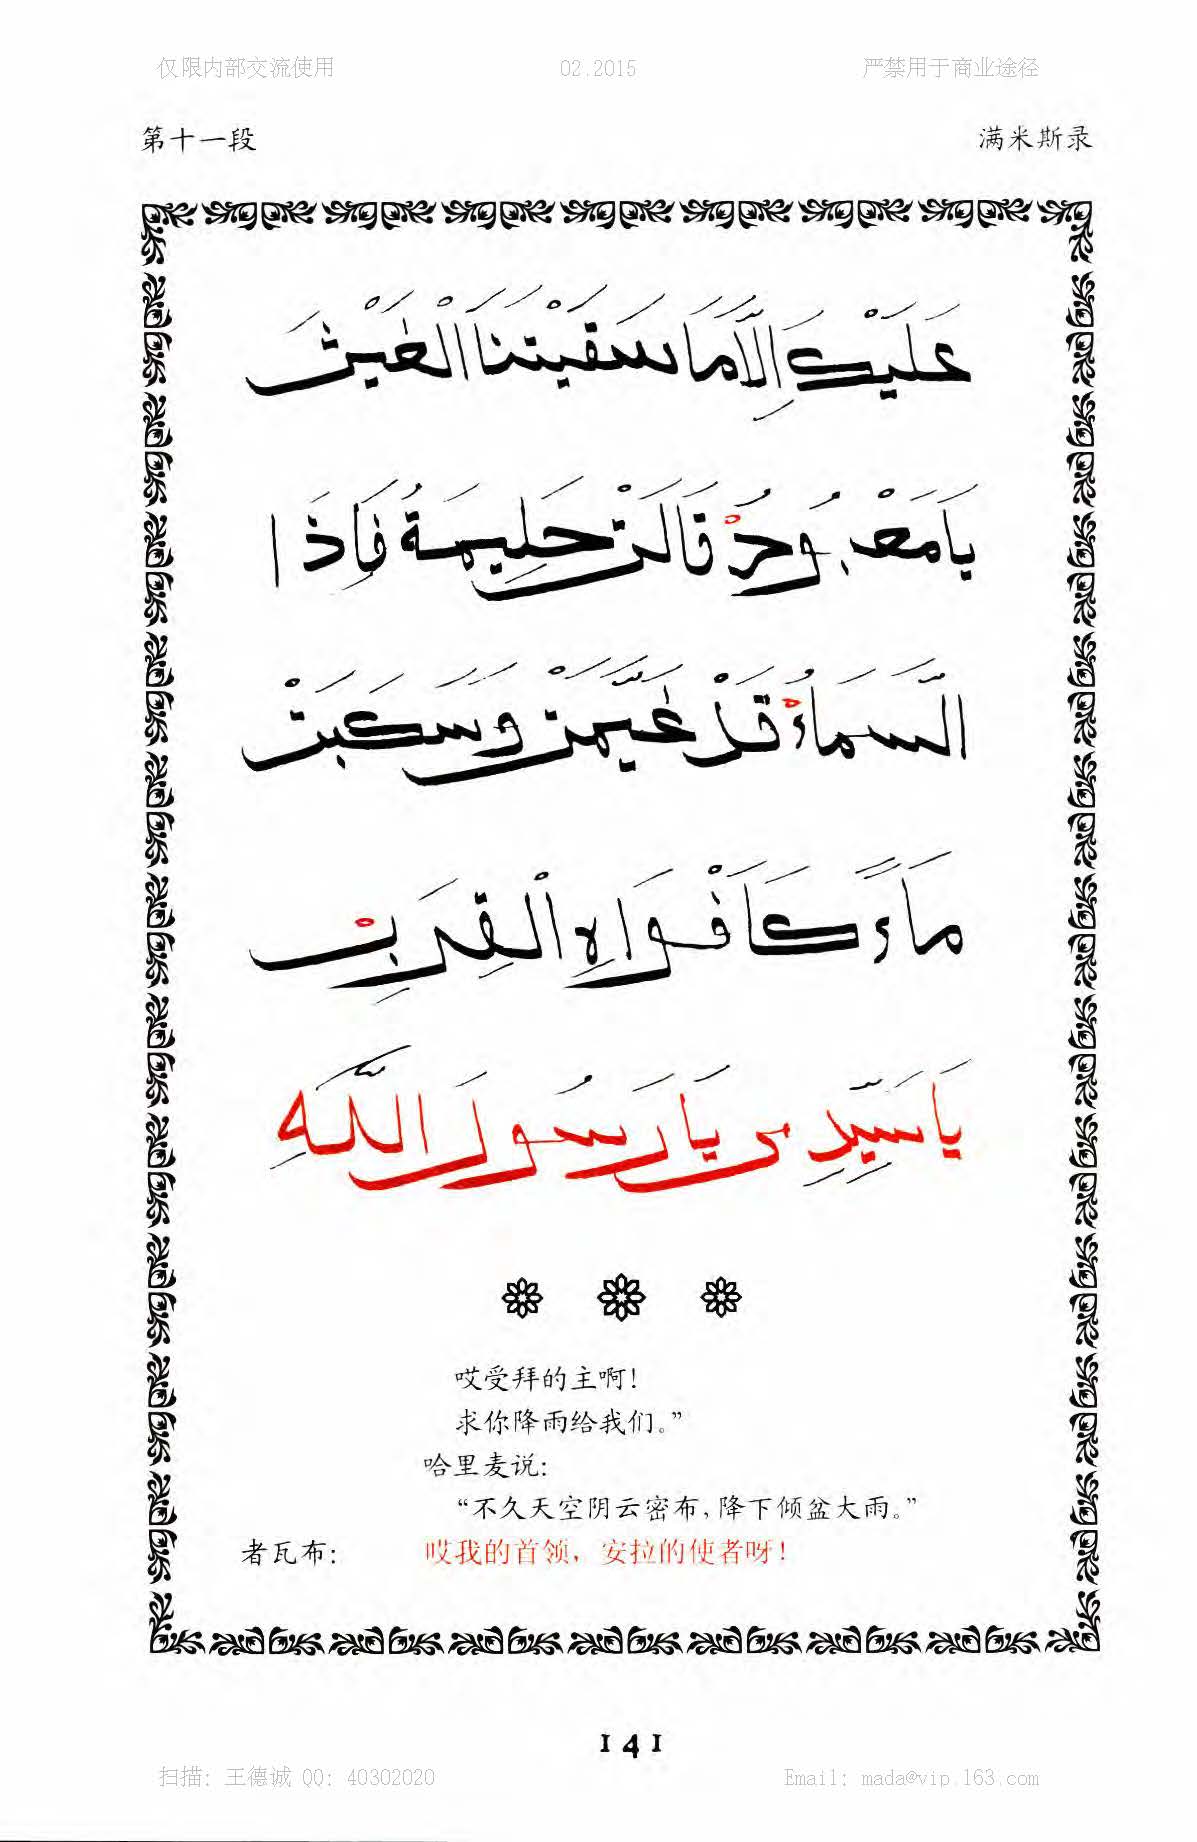 仅限内部交流使用 02.2015 严禁用于商业途径
第十一段 满米斯录
عَلَيْكَ اِلَّا مَا سَقَيْتَنَا الْغَيْثَ
يَا مَعْبُودُ قَالَتْ حَلِيمَةُ فَاِذَا
السَّمَاءُ قَدْ غَيَّمَتْ وَسَكَبَتْ
مَاءً كَاَفْوَاهِ الْقِرَبِ
يَا سَيِّدِي يَا رَسُولَ اللَّهِ
哎受拜的主啊!
求你降雨给我们。”
哈里麦说:
“不久天空阴云密布,降下倾盆大雨。”
者瓦布: 哎我的首领,安拉的使者呀!
141
扫描: 王德诚 QQ: 40302020 Email: mada@vip.163.com